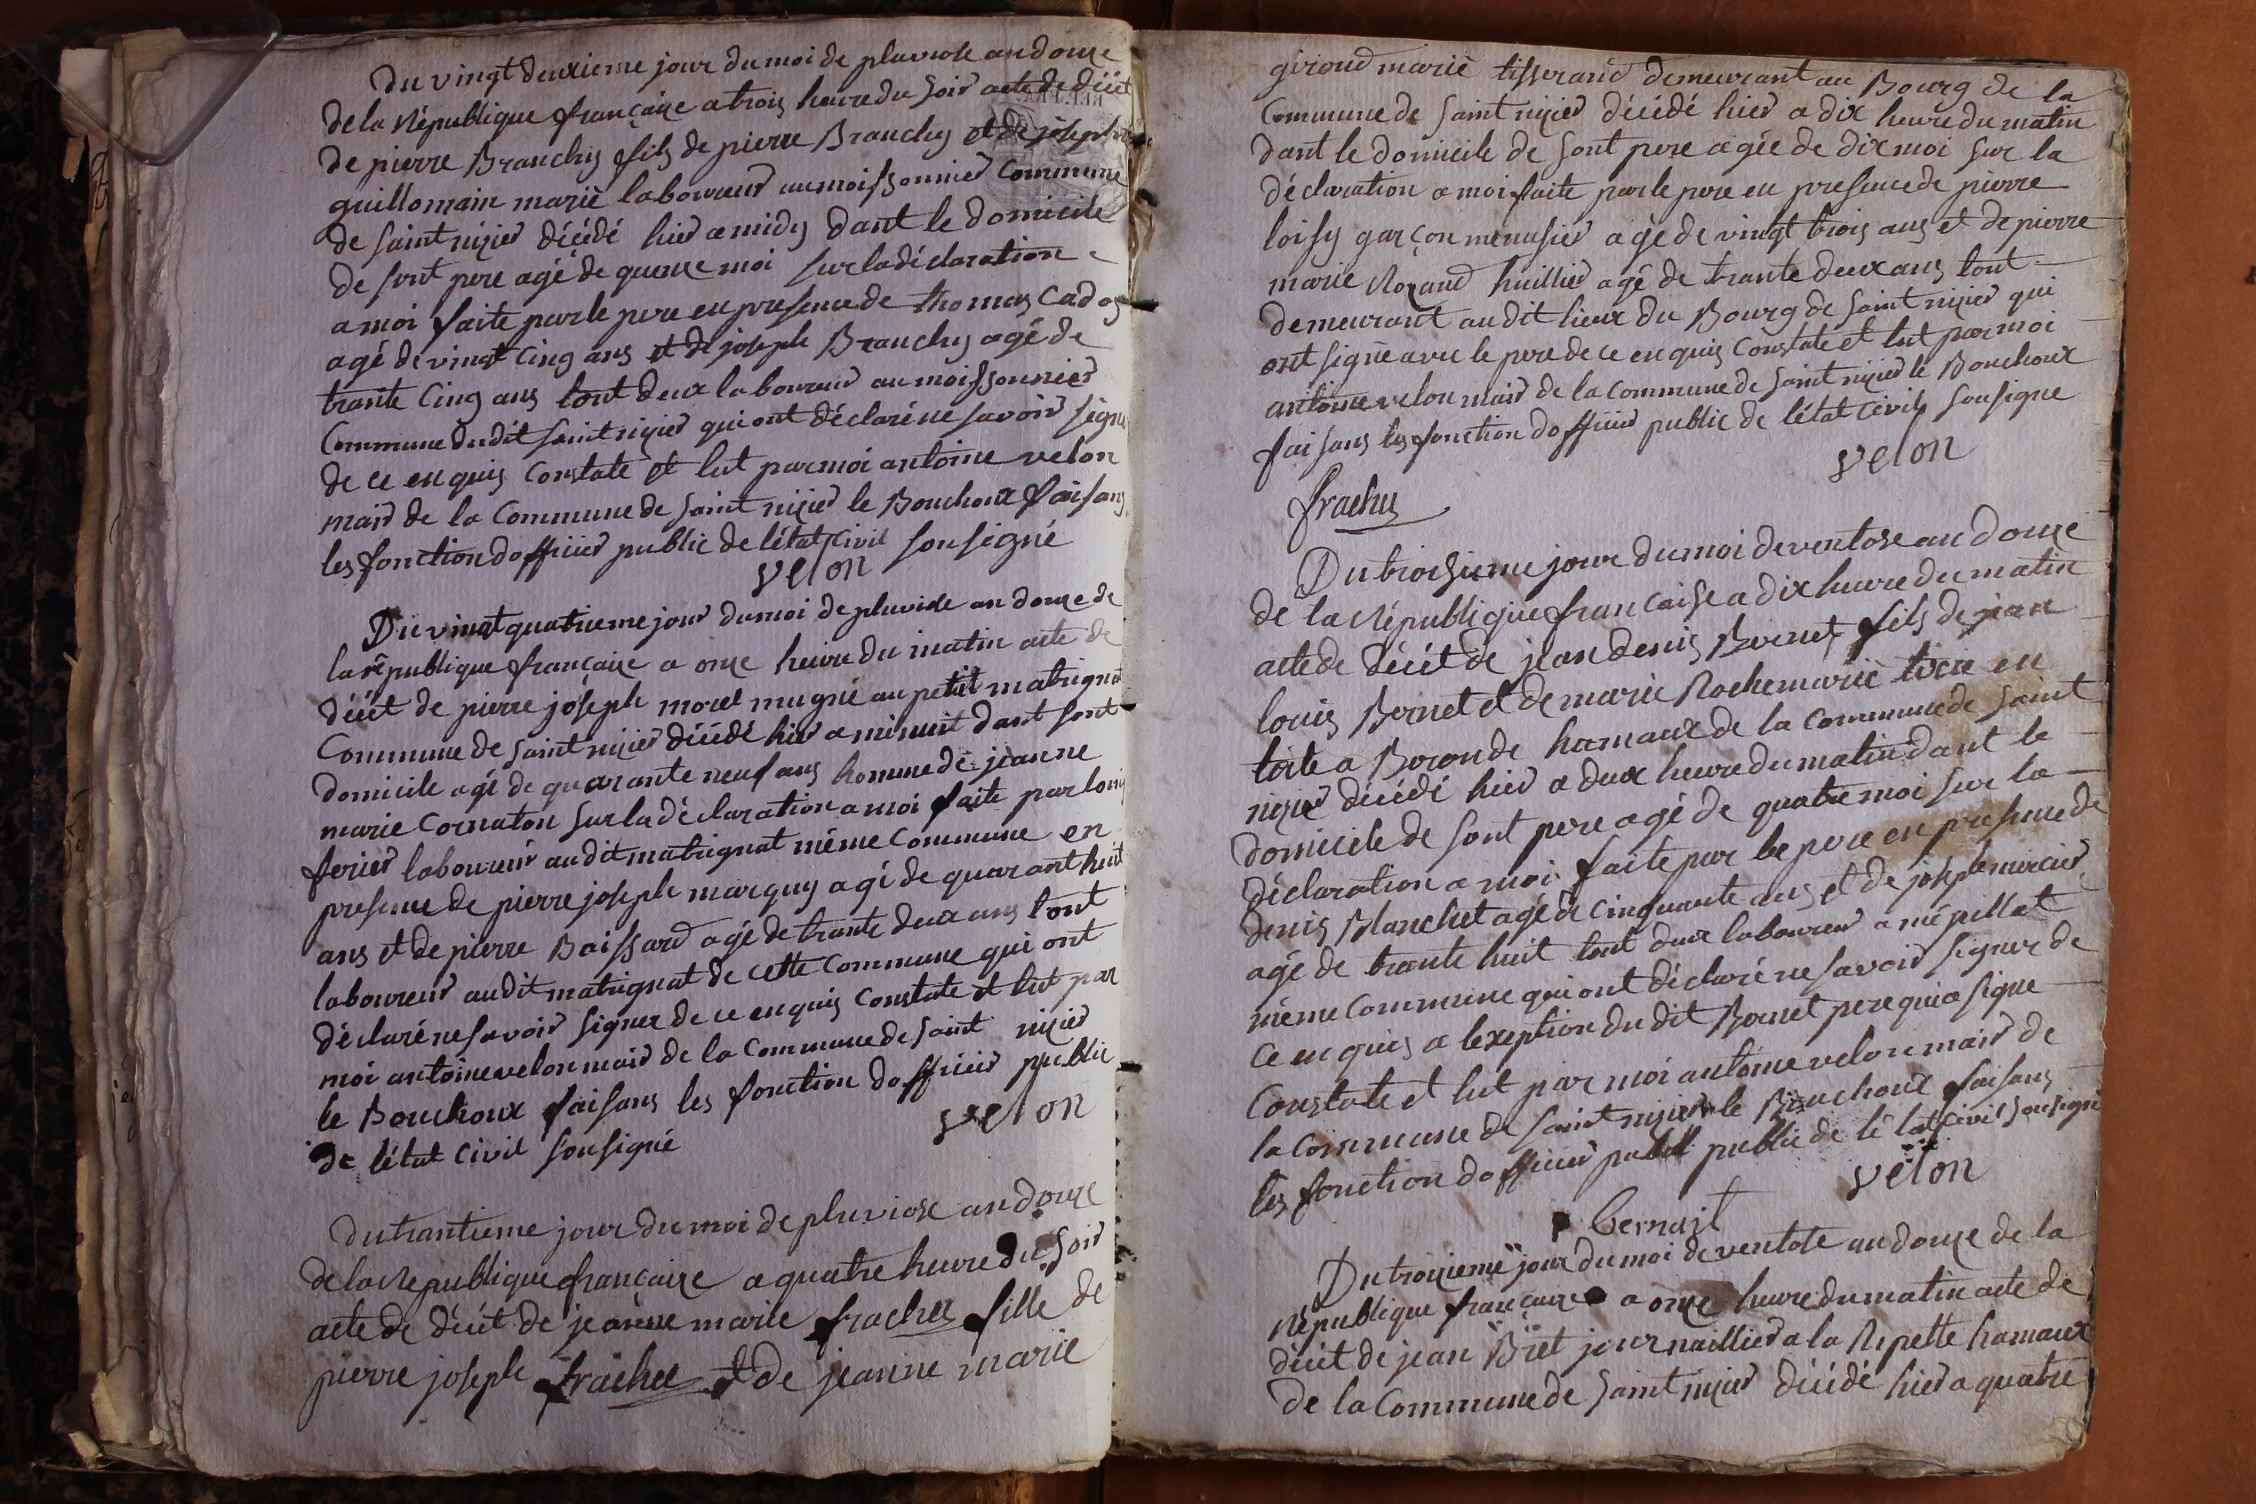 Du vingt deuxieme jour du moi de pluviose an douze
de la République françaize a trois heure du soir acte de décèt
de pierre Branchy fils de pierre Branchy et de joseph
guillomain mariè laboureur au moissonnier Commune
de saint nizier décédé hier a midy dant le domicile
de sont pere agé de quenze moi sur la déclaration
a moi faite par le pere en presence de thomas Cados
agé de vingt Cinq ans et de joseph Branchy agé de
trante Cinq ans tout deux laboureur au moissonnier
Commune du dit saint nizier qui ont déclaré ne savoir signe
de ce enquis Constate et lut par moi antoine velon
mair de la Commune de saint nizier le Bouchoux faisans
les fonction dofficier public de létat Civil sousigné
velon
Du vingt quatrieme jour du moi de pluviose an douze de
la république françaize a onze heure du matin acte de
décèt de pierre joseph morel mugnié au petit matrignat
Commune de saint nizier décédé hier a minuit dant sont
domicile agé de quarante neuf ans homme de jeanne
marie Cornaton sur la déclaration a moi faite par louis
ferier laboureur au dit matrignat méme Commune en
presence de pierre joseph marguy agé de quarant huit
ans et de pierre Baissard agé de trante deux ans tout
laboureur au dit matrignat de cette Commune qui ont
déclaré ne savoir signer de ce enquis Constate et lut par
moi antoine velon mair de la Commune de saint nizier
le Bouchoux faisans les fonction dofficier public
de létat Civil sousigné
velon
Du trantieme jour du moi de pluviose an douze
de la Republique françaize a quatre heure du soir
acte de décèt de jeanne marie frachet fille de
pierre joseph frachet et de jeanine marie
giroud mariè tisserand demeurant au Bourg de la
Commune de saint nizier décédé hier a dix heure du matin
dant le domicile de sont pere agée de dix moi sur la
déclaration a moi faite par le pere en presence de pierre
loisy garçon menusier agé de vingt trois ans et de pierre
marie Royand huillier agé de trante deux ans tout
demeurant au dit lieux du Bourg de saint nizier qui
ont signe avec le pere de ce enquis Constate et lut par moi
antoine velon mair de la Commune de saint nizier le Bouchoux
faisans les fonction dofficier public de létat Civil sousigne
velon
frachet
Du troisieme jour du moi de ventose an douze
de la République françaize a dix heure du matin
acte de décèt de jean denis Bernet fils de jean
louis Bernet et de marie Roche mariè en
a Boronde hamaux de la Commune de saint
nizier décédé hier a deux heure du matin dant le
domicile de sont pere agé de quatre moi sur la
déclaration a moi faite par le pere en presence de
denis Blanchet agé de cinquante ans et de joseph mercier
agé de trante huit tout deux laboureur a mépillat
méme Commune qui ont déclaré ne savoir signer de
ce enquis a lexeption du dit Bernet pere qui a signe
Constate et lut par moi antoine velon mair de
la Commune de saint nizier le Bouchoux faisans
les fonction dofficier public de létat Civil sousigné
velon
Bernait
Du troizieme jour du moi de ventose an douze de la
République françaize a onze heure du matin acte de
décèt de jean Briet journaillier a la Repette hamaux
de la Commune de saint nizier décédé hier a quatre